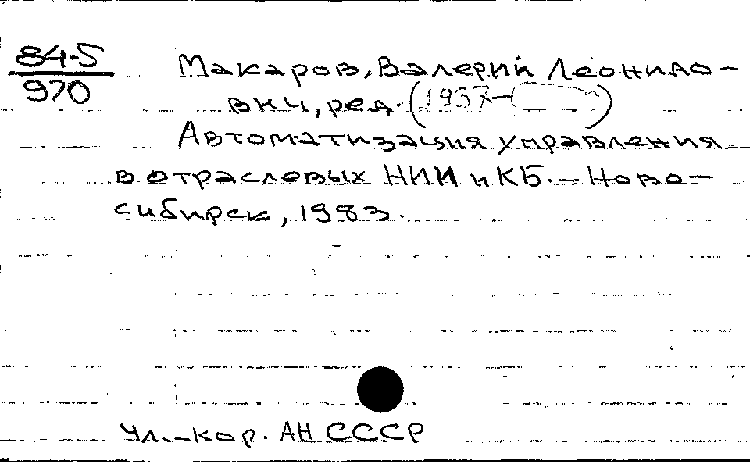 84-5
970
Макаров, Валерий Леонидо-
вич, ред. (1937-
Автоматизация управления
в отраслевых НИИ и КБ. - Ново-
сибирск, 1983.
Чл.-кор. АН СССР